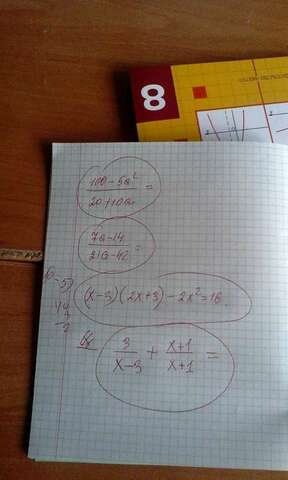 8
100-5a²/20+10a =
7a-14/21a-42 =
(x-3)(2x+3)-2x²=18
3/x-3 + x+1/x+1 =